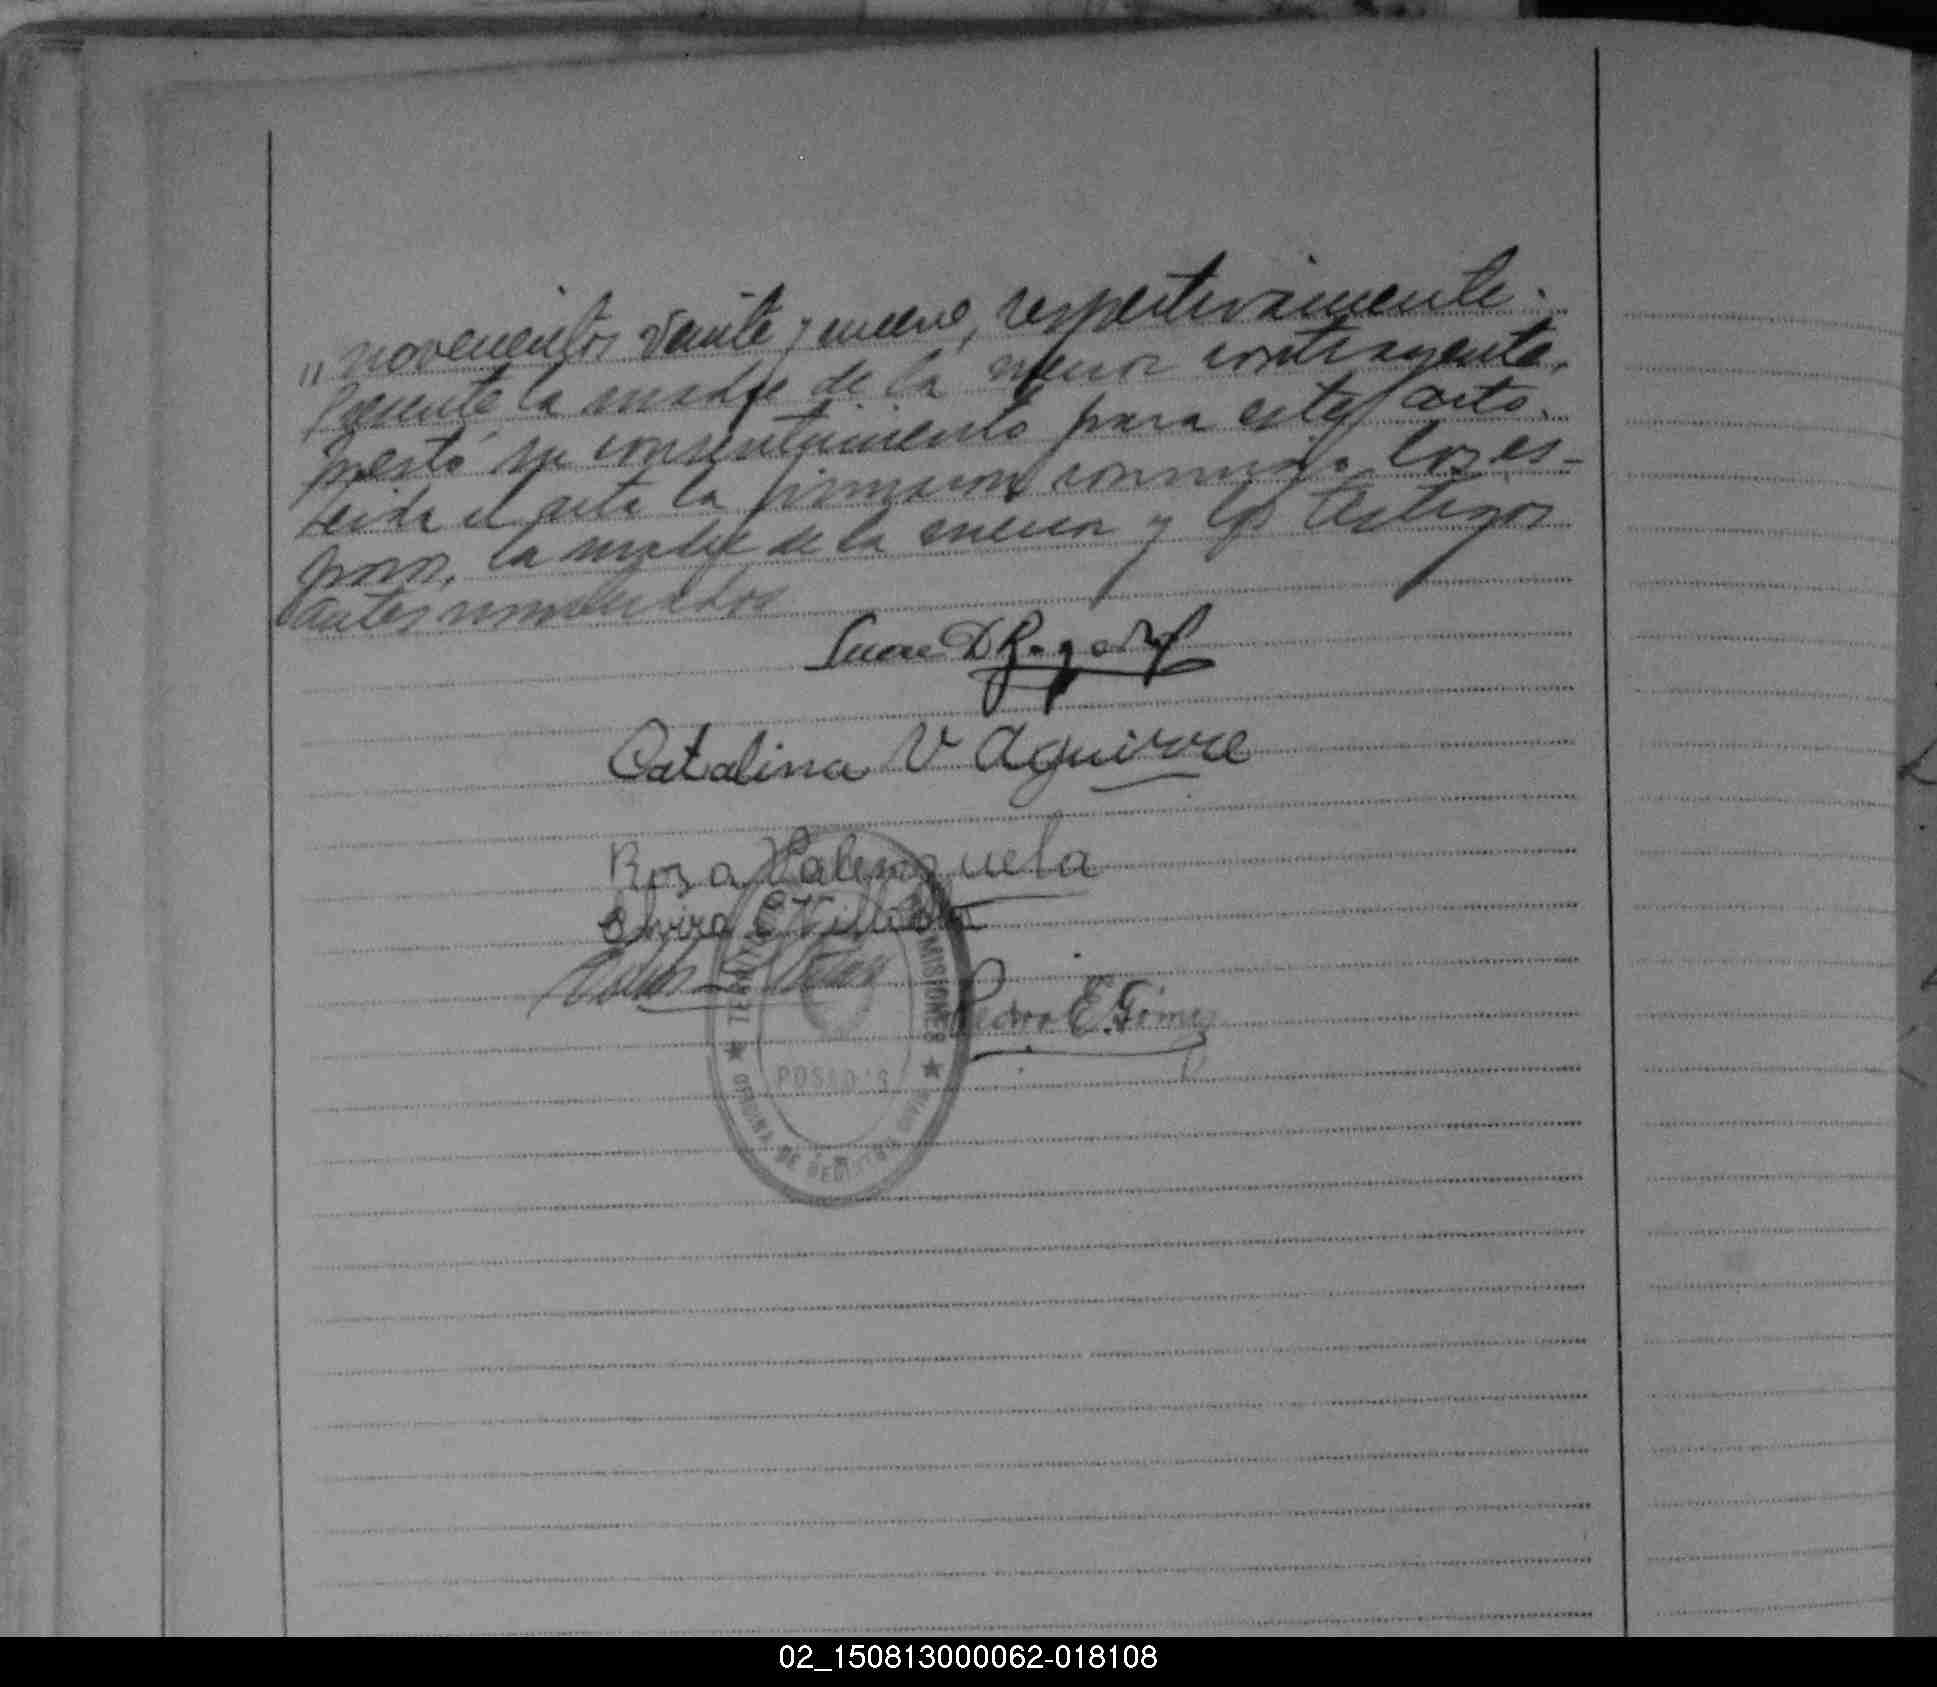 " novecientos veinte y nueve, respectivamente.
Presente la madre de la menor contrayente,
prestó su consentimiento para este acto.
Leida el acta la firmaron conmigo los es-
posos, la madre de la menor y los testigos
antes nombrados
Catalina V Aguirre
Rosa Valenzuela
Elvira E Villalba
Pedro E. Gómez
MISIONES
POSADAS
OFICINA DE REGISTRO CIVIL
02_150813000062-018108